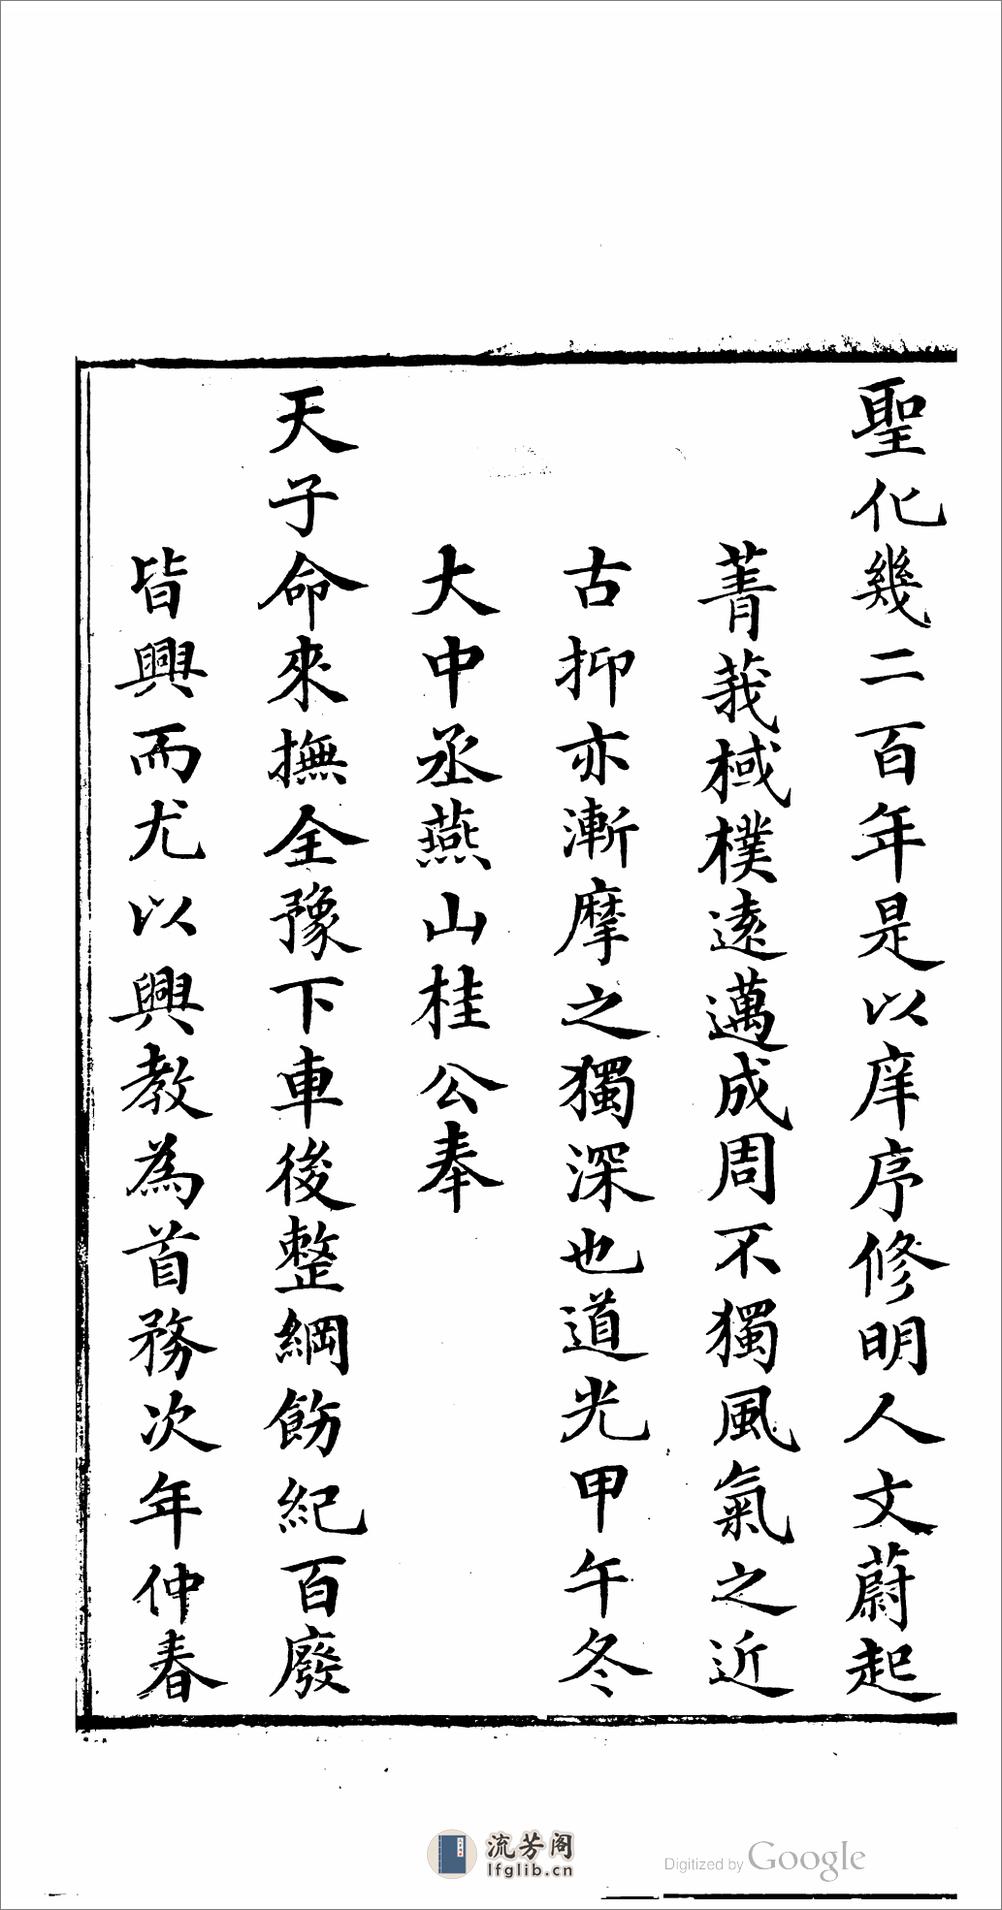 聖化幾二百年是以庠序修明人文蔚起
菁莪棫樸遠邁成周不獨風氣之近
古抑亦漸摩之獨深也道光甲午冬
大中丞燕山桂公奉
天子命來撫全豫下車後整綱飭紀百廢
皆興而尤以興教為首務次年仲春
流芳阁
lfglib.cn
Digitized by Google